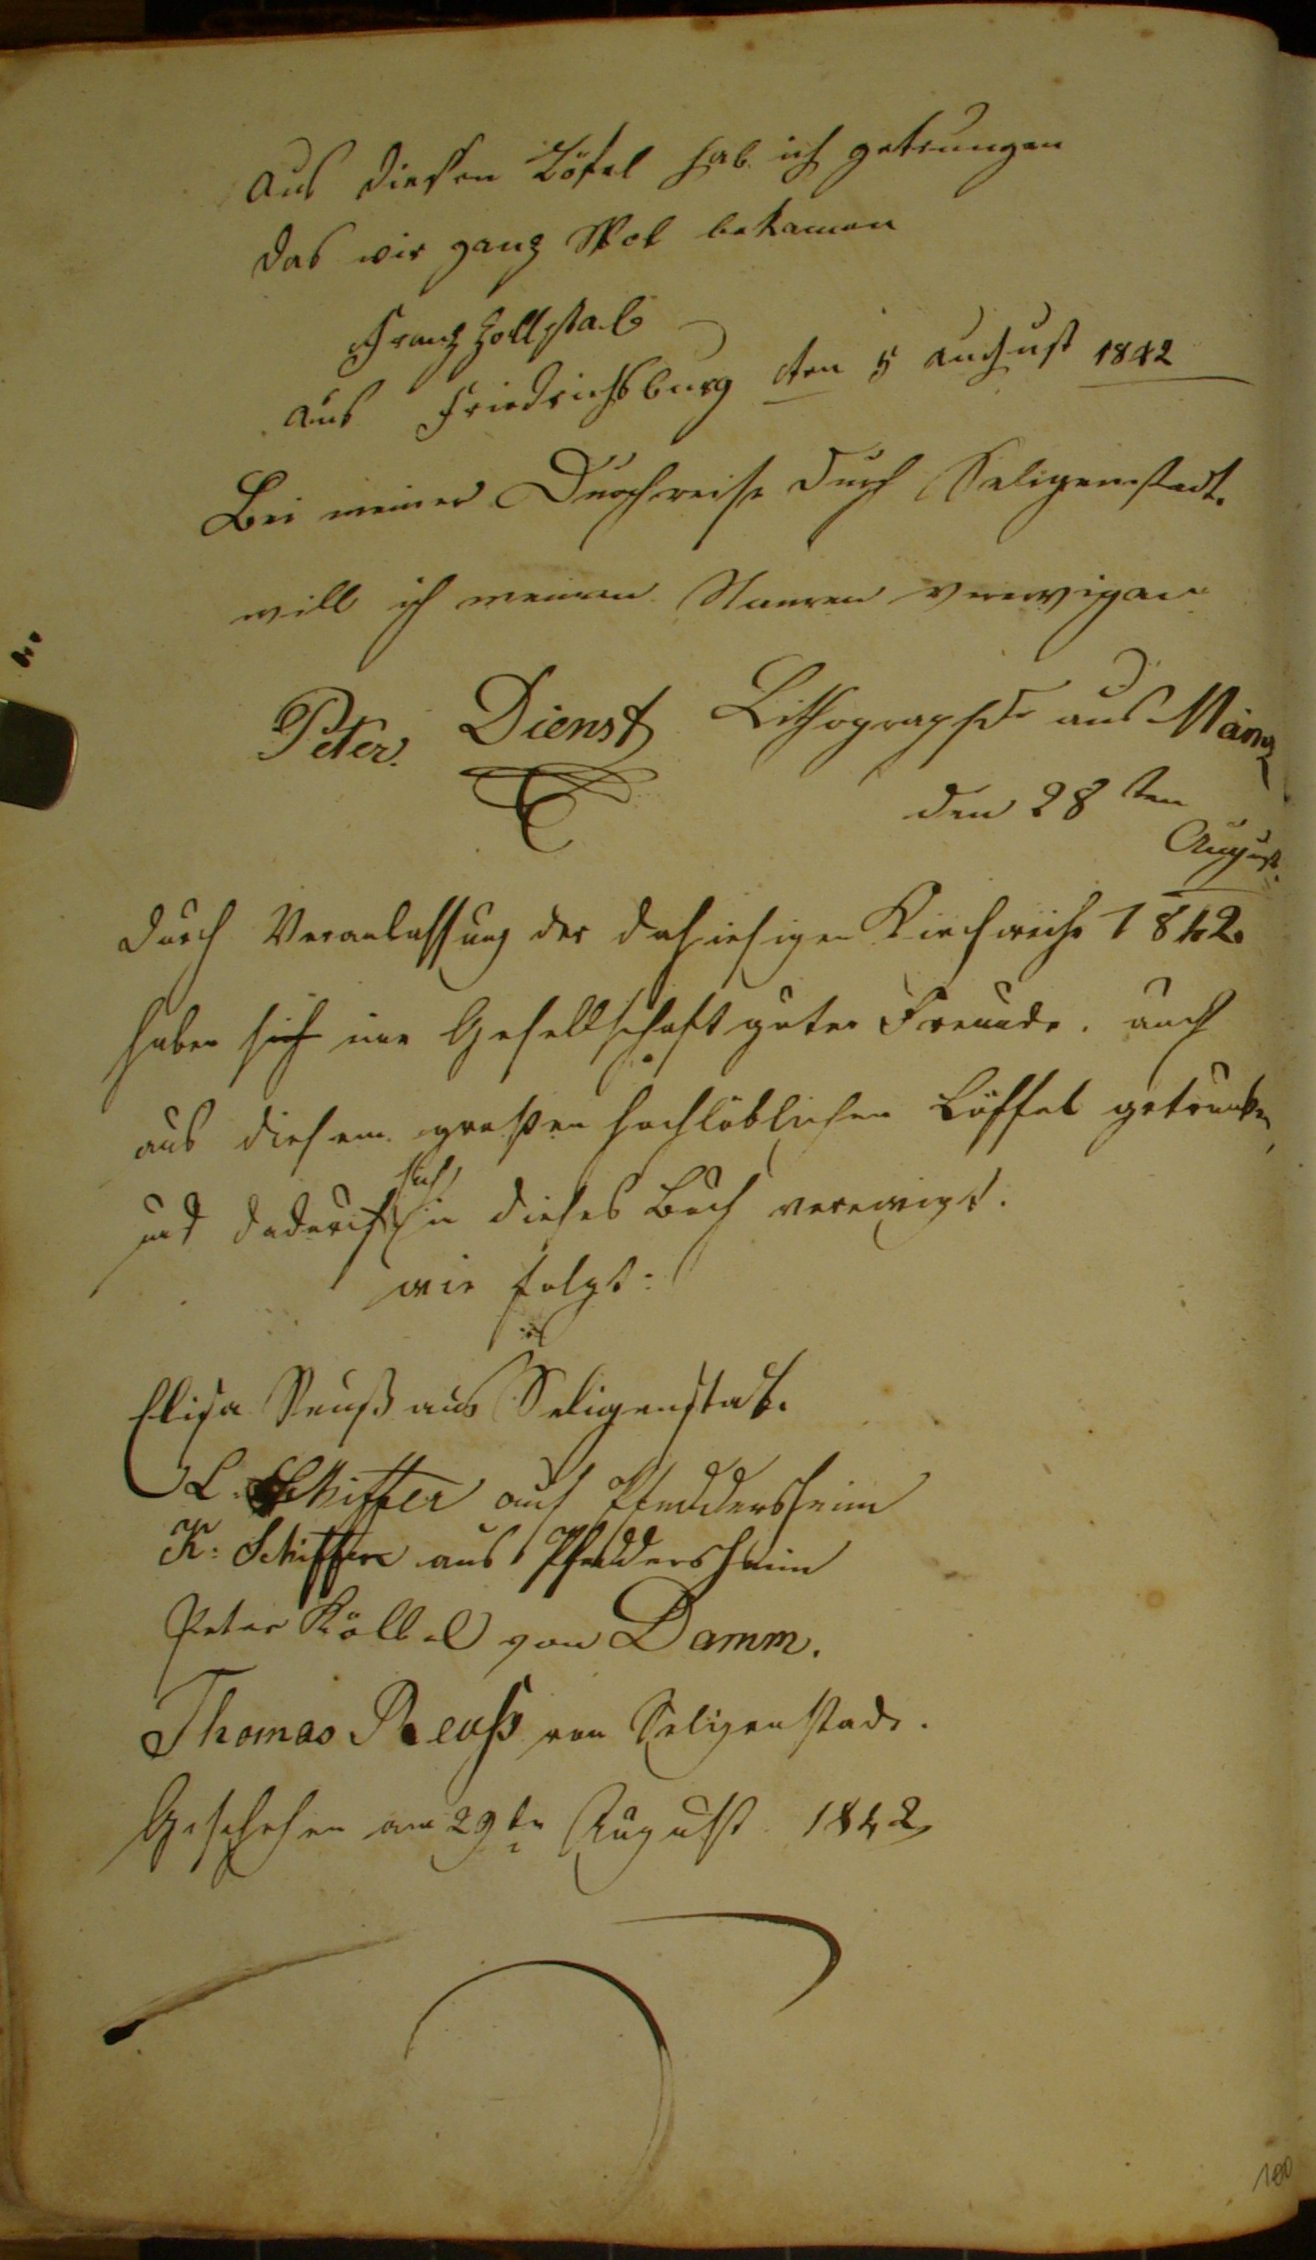 Aus diesen Löfel hab ich getrungen
das wir ganz Wol bekamen
Franz Zollstab
aus Friedrichsburg den 5 august 1842
Bei meiner Durchreise durch Seligenstadt.
will ich meinen Namen verewigen
Peter. Dienst Lithographe aus Mainz
den 28ten
August.
Durch Veranlassung der dahiesigen Kirchweihe 1842.
haben sich eine Gesellschaft guter Freunde. auch
aus diesem großen hochlöblichen Löffel getrunken,
und dadurch sich in dieses Buch verewigt.
wie folgt:
als
Elisa Reuß aus Seligenstadt.
L. Schiffer aus Pfeddersheim
K: Schiffer aus Pfeddersheim
Peter Kölbel von Damm.
Thomas Reuß von Seligenstadt.
Geschehen am 29ten August 1842
100